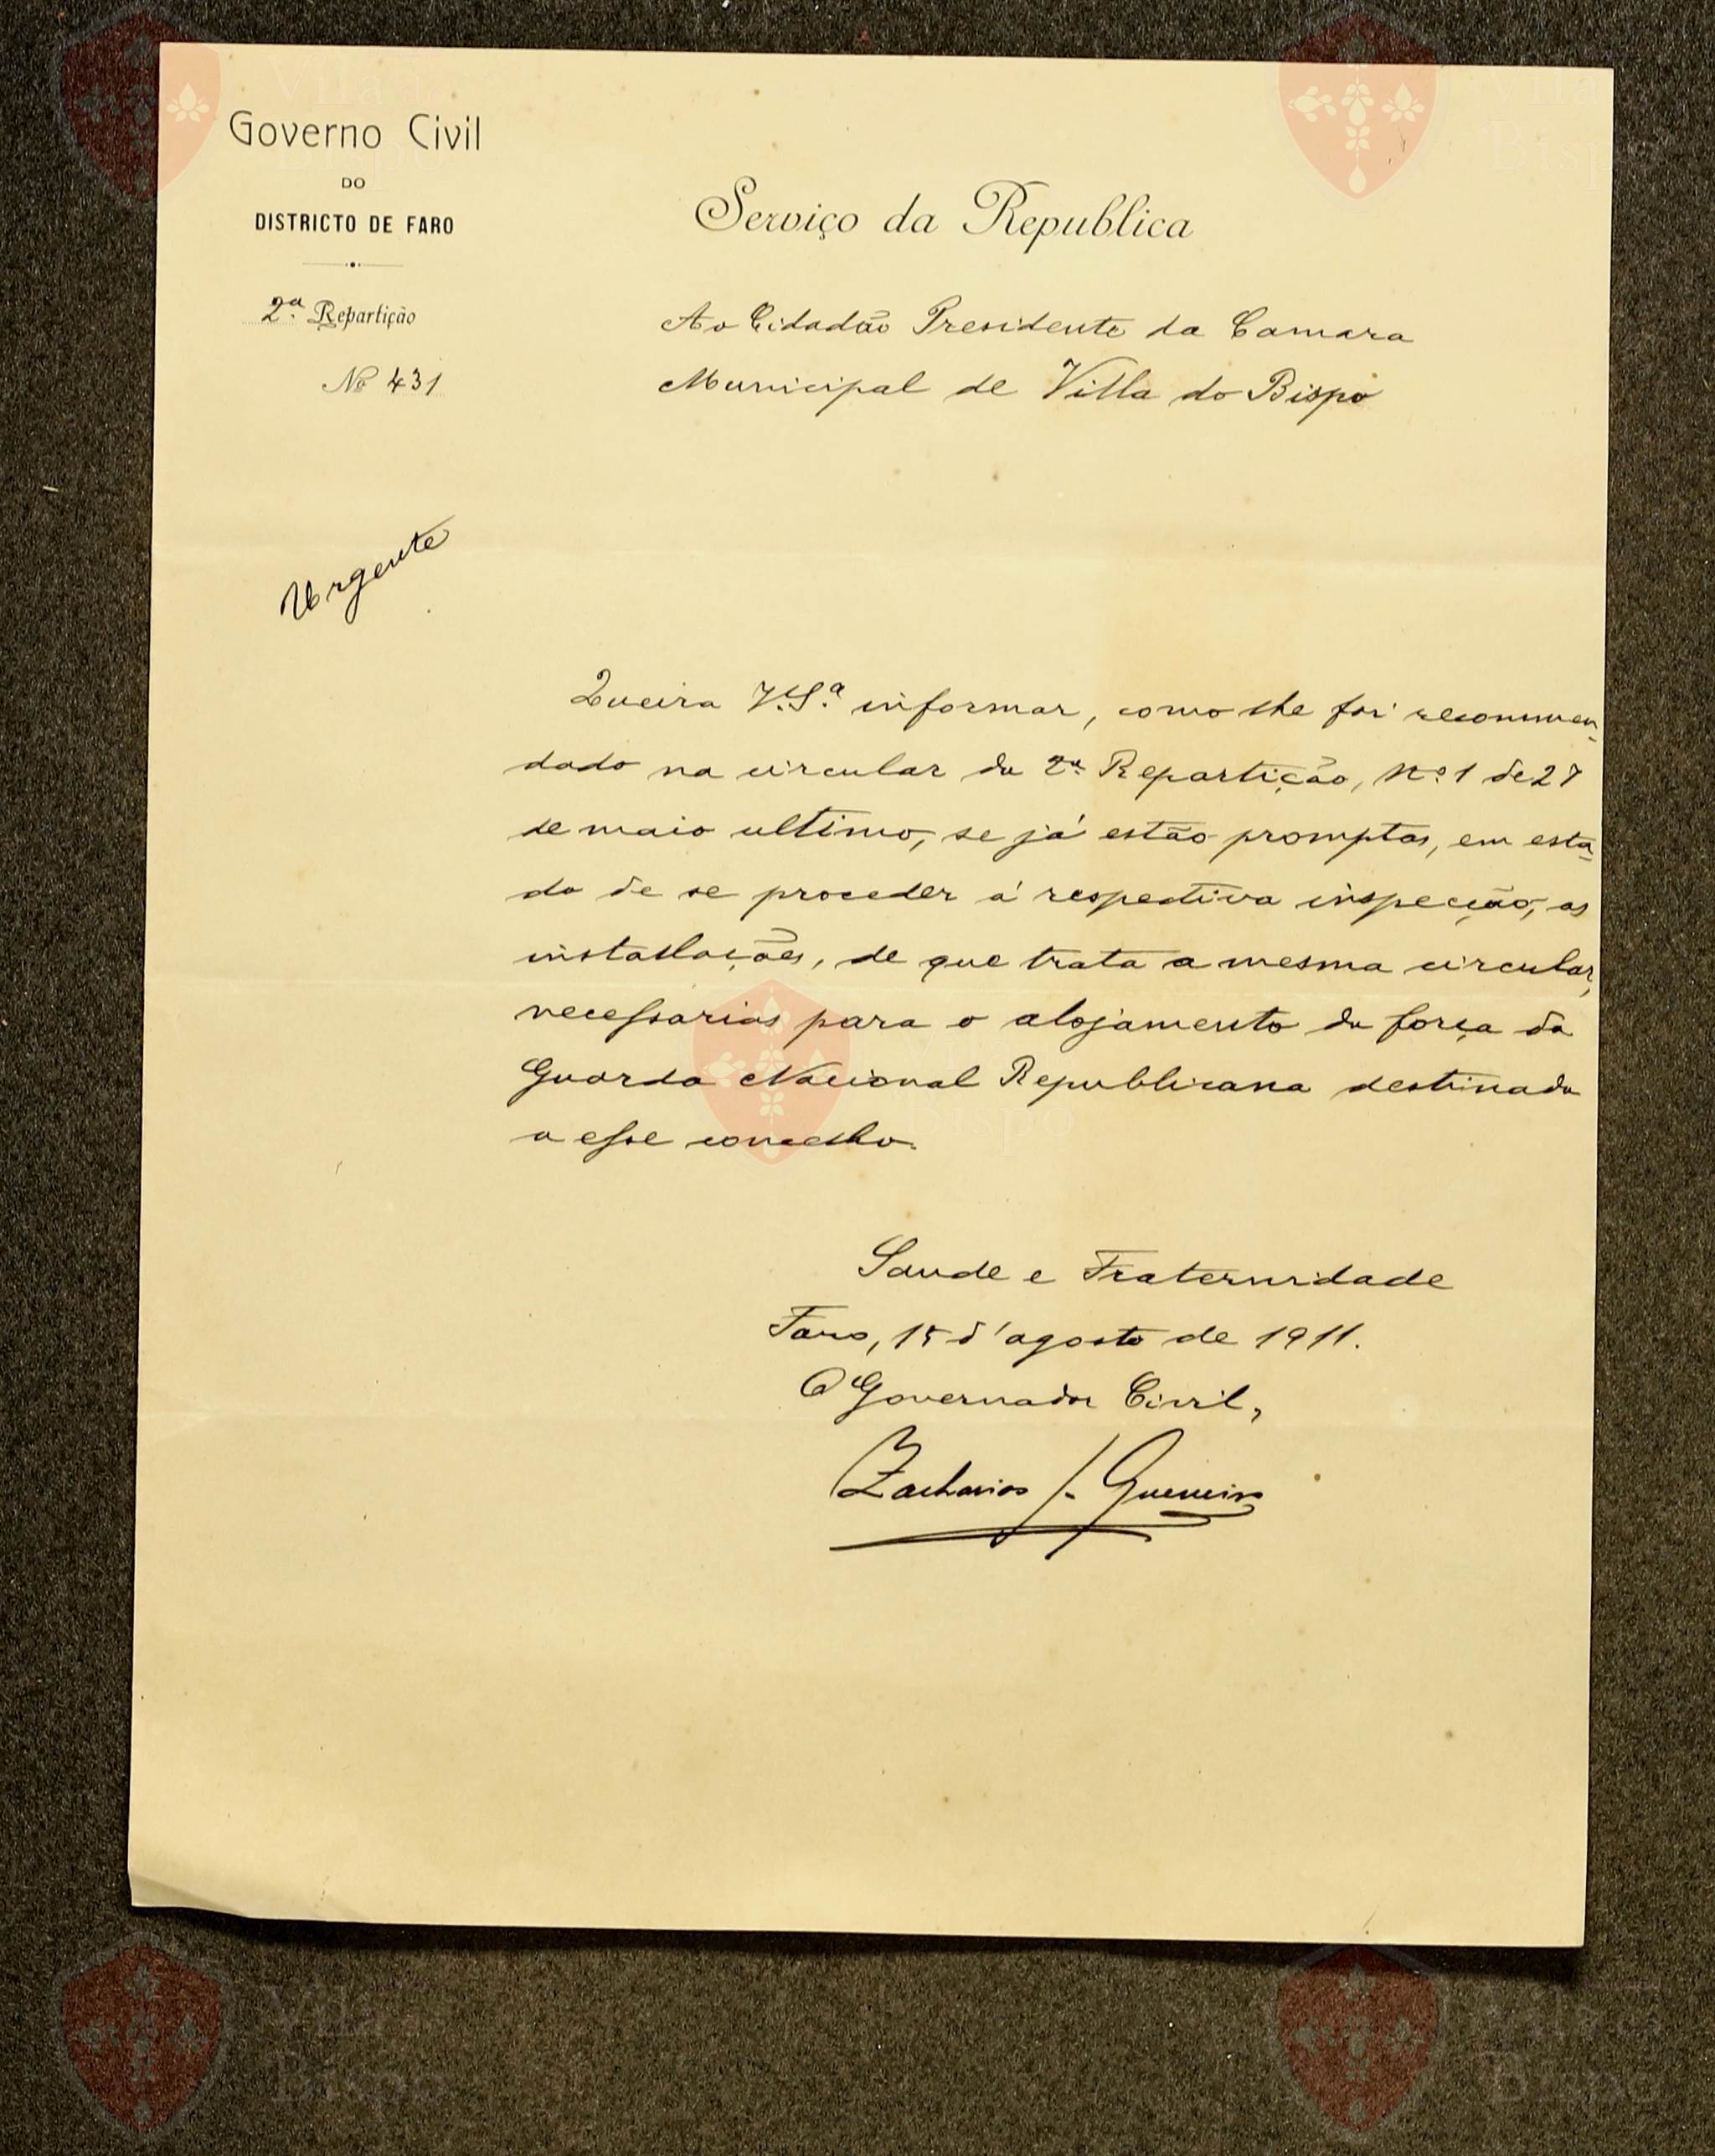 Governo Civil
DO
DISTRICTO DE FARO
2.ª Repartição
Nº 431
Serviço da Republica
Ao Cidadão Presidente da Camara
Municipal de Villa do Bispo
Urgente
Queira V.S.ª informar, como lhe foi recommen-
dado na circular da 2.ª Repartição, Nº 1 de 27
de maio ultimo, se já estão promptas, em esta-
do de se proceder á respectiva inspecção, as
installações, de que trata a mesma circular,
necessarias para o alojamento da força da
Guarda Nacional Republicana destinada
a esse concelho.
Saude e Fraternidade
Faro, 15 d'agosto de 1911.
O Governador Civil,
Zacharias J. Guerreiro
Vila do
Bispo